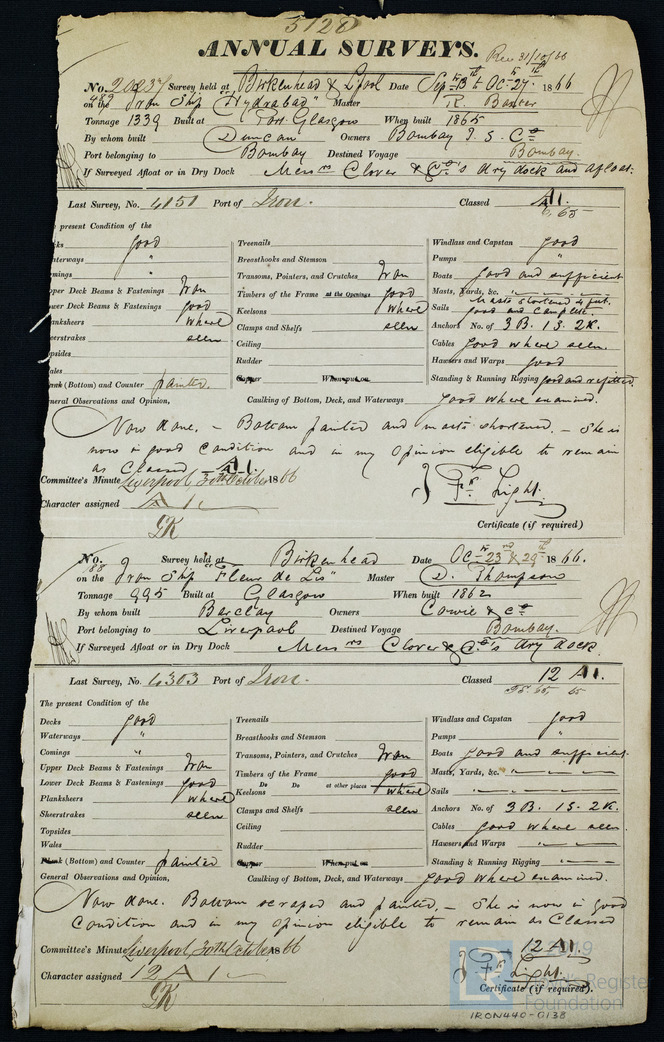 5128
ANNUAL SURVEYS. Rec 31/10/66
No. 20237 Survey held at Birkenhead & Lpool Date Sep 13th to Oct 27th 1866
on the Iron Ship "Hydrabad" Master R. Baxter
Tonnage 1339 Built at Port Glasgow When built 1865
By whom built Duncan Owners Bombay I. S. Co
Port belonging to Bombay Destined Voyage Bombay.
If Surveyed Afloat or in Dry Dock Messrs Clover & Co's dry dock and afloat.
Last Survey, No. 4151 Port of Iron. Classed A1.
6, 65
e present Condition of the
cks good Treenails Windlass and Capstan good
aterways " Breasthooks and Stemson Pumps "
mings " Transoms, Pointers, and Crutches Iron Boats good and sufficient
pper Deck Beams & Fastenings Iron Timbers of the Frame at the Openings good Masts, Yards, &c. "
Masts shortened 4 feet.
ower Deck Beams & Fastenings good Keelsons where Sails good and complete.
anksheers where Clamps and Shelfs seen Anchors No. of 3 B. 1 S. 2 K.
eerstrakes seen Ceiling Cables good where seen.
opsides Rudder Hawsers and Warps good
ales Copper When put on Standing & Running Rigging good and refitted.
ank (Bottom) and Counter painted.
eneral Observations and Opinion, Caulking of Bottom, Deck, and Waterways good where examined.
Now done. - Bottom painted and masts shortened. - She is
now in good condition and in my opinion eligible to remain
as Classed A1.
Committee's Minute Liverpool 30th October 1866
Fk. Light.
Character assigned A1
Certificate (if required)
No. 188 Survey held at Birkenhead Date Oct 23rd & 29th 1866.
on the Iron Ship "Fleur de Lis" Master D. Thompson
Tonnage 995 Built at Glasgow When built 1862
By whom built Barclay Owners Cowie & Co
Port belonging to Liverpool Destined Voyage Bombay.
If Surveyed Afloat or in Dry Dock Messrs Clover & Co's dry dock
Last Survey, No. 4303 Port of Iron. Classed 12 A1.
The present Condition of the
Decks good Treenails Windlass and Capstan good
Waterways " Breasthooks and Stemson Pumps "
Comings " Transoms, Pointers, and Crutches Iron Boats good and sufficient.
Upper Deck Beams & Fastenings Iron Timbers of the Frame good Masts, Yards, &c. "
Do Do at other places
Lower Deck Beams & Fastenings good Keelsons where Sails "
Planksheers where Clamps and Shelfs seen Anchors No. of 3 B. 1 S. 2 K.
Sheerstrakes seen Ceiling Cables good where seen
Topsides Rudder Hawsers and Warps "
Wales Copper When put on Standing & Running Rigging "
Plank (Bottom) and Counter painted
General Observations and Opinion, Caulking of Bottom, Deck, and Waterways good where examined.
Now done. Bottom scraped and painted. - She is now in good
Condition and in my opinion eligible to remain as Classed
12 A1.
Committee's Minute Liverpool 30th October 1866
Fk. Light.
Character assigned 12 A1
Certificate (if required).
LR
Register
Foundation
IRON440-0138